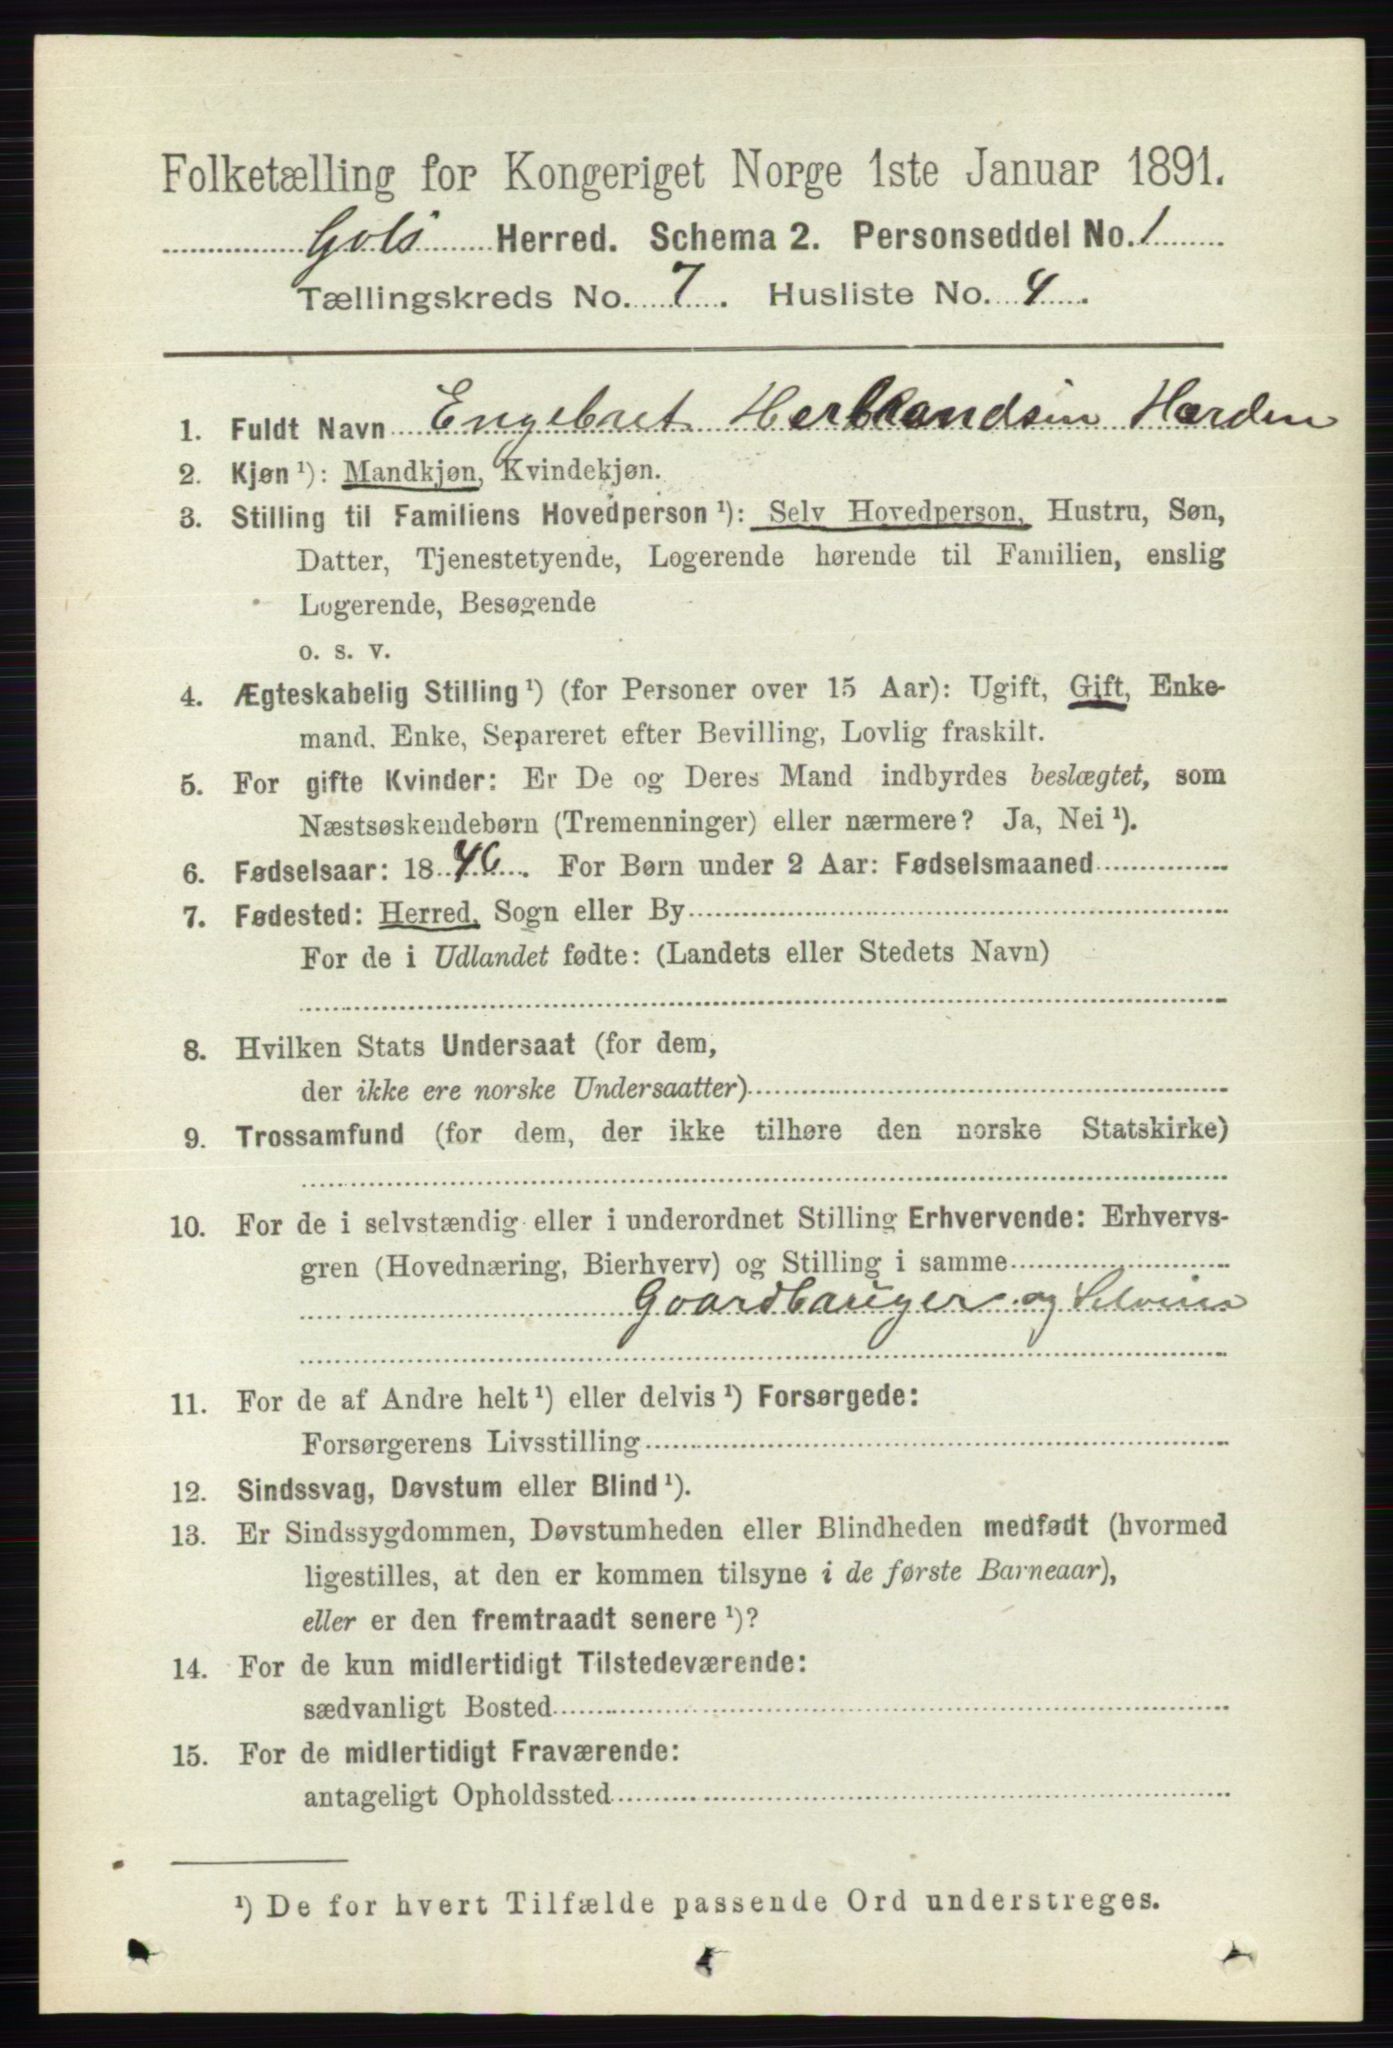 Folketælling for Kongeriget Norge 1ste Januar 1891.
Gols Herred. Schema 2. Personseddel No. 1
Tællingskreds No. 7. Husliste No. 4.
1. Fuldt Navn Engebret Herbrandsen Harden
2. Kjøn ¹): Mandkjøn, Kvindekjøn.
3. Stilling til Familiens Hovedperson ¹): Selv Hovedperson, Hustru, Søn,
Datter, Tjenestetyende, Logerende hørende til Familien, enslig
Logerende, Besøgende
o. s. v.
4. Ægteskabelig Stilling ¹) (for Personer over 15 Aar): Ugift, Gift, Enke-
mand, Enke, Separeret efter Bevilling, Lovlig fraskilt.
5. For gifte Kvinder: Er De og Deres Mand indbyrdes beslægtet, som
Næstsøskendebørn (Tremenninger) eller nærmere? Ja, Nei ¹).
6. Fødselsaar: 1846. For Børn under 2 Aar: Fødselsmaaned
7. Fødested: Herred, Sogn eller By
For de i Udlandet fødte: (Landets eller Stedets Navn)
8. Hvilken Stats Undersaat (for dem,
der ikke ere norske Undersaatter)
9. Trossamfund (for dem, der ikke tilhøre den norske Statskirke)
10. For de i selvstændig eller i underordnet Stilling Erhvervende: Erhvervs-
gren (Hovednæring, Bierhverv) og Stilling i samme
Gaardbruger og Selveier
11. For de af Andre helt ¹) eller delvis ¹) Forsørgede:
Forsørgerens Livsstilling
12. Sindssvag, Døvstum eller Blind ¹).
13. Er Sindssygdommen, Døvstumheden eller Blindheden medfødt (hvormed
ligestilles, at den er kommen tilsyne i de første Barneaar),
eller er den fremtraadt senere ¹)?
14. For de kun midlertidigt Tilstedeværende:
sædvanligt Bosted
15. For de midlertidigt Fraværende:
antageligt Opholdssted
¹) De for hvert Tilfælde passende Ord understreges.